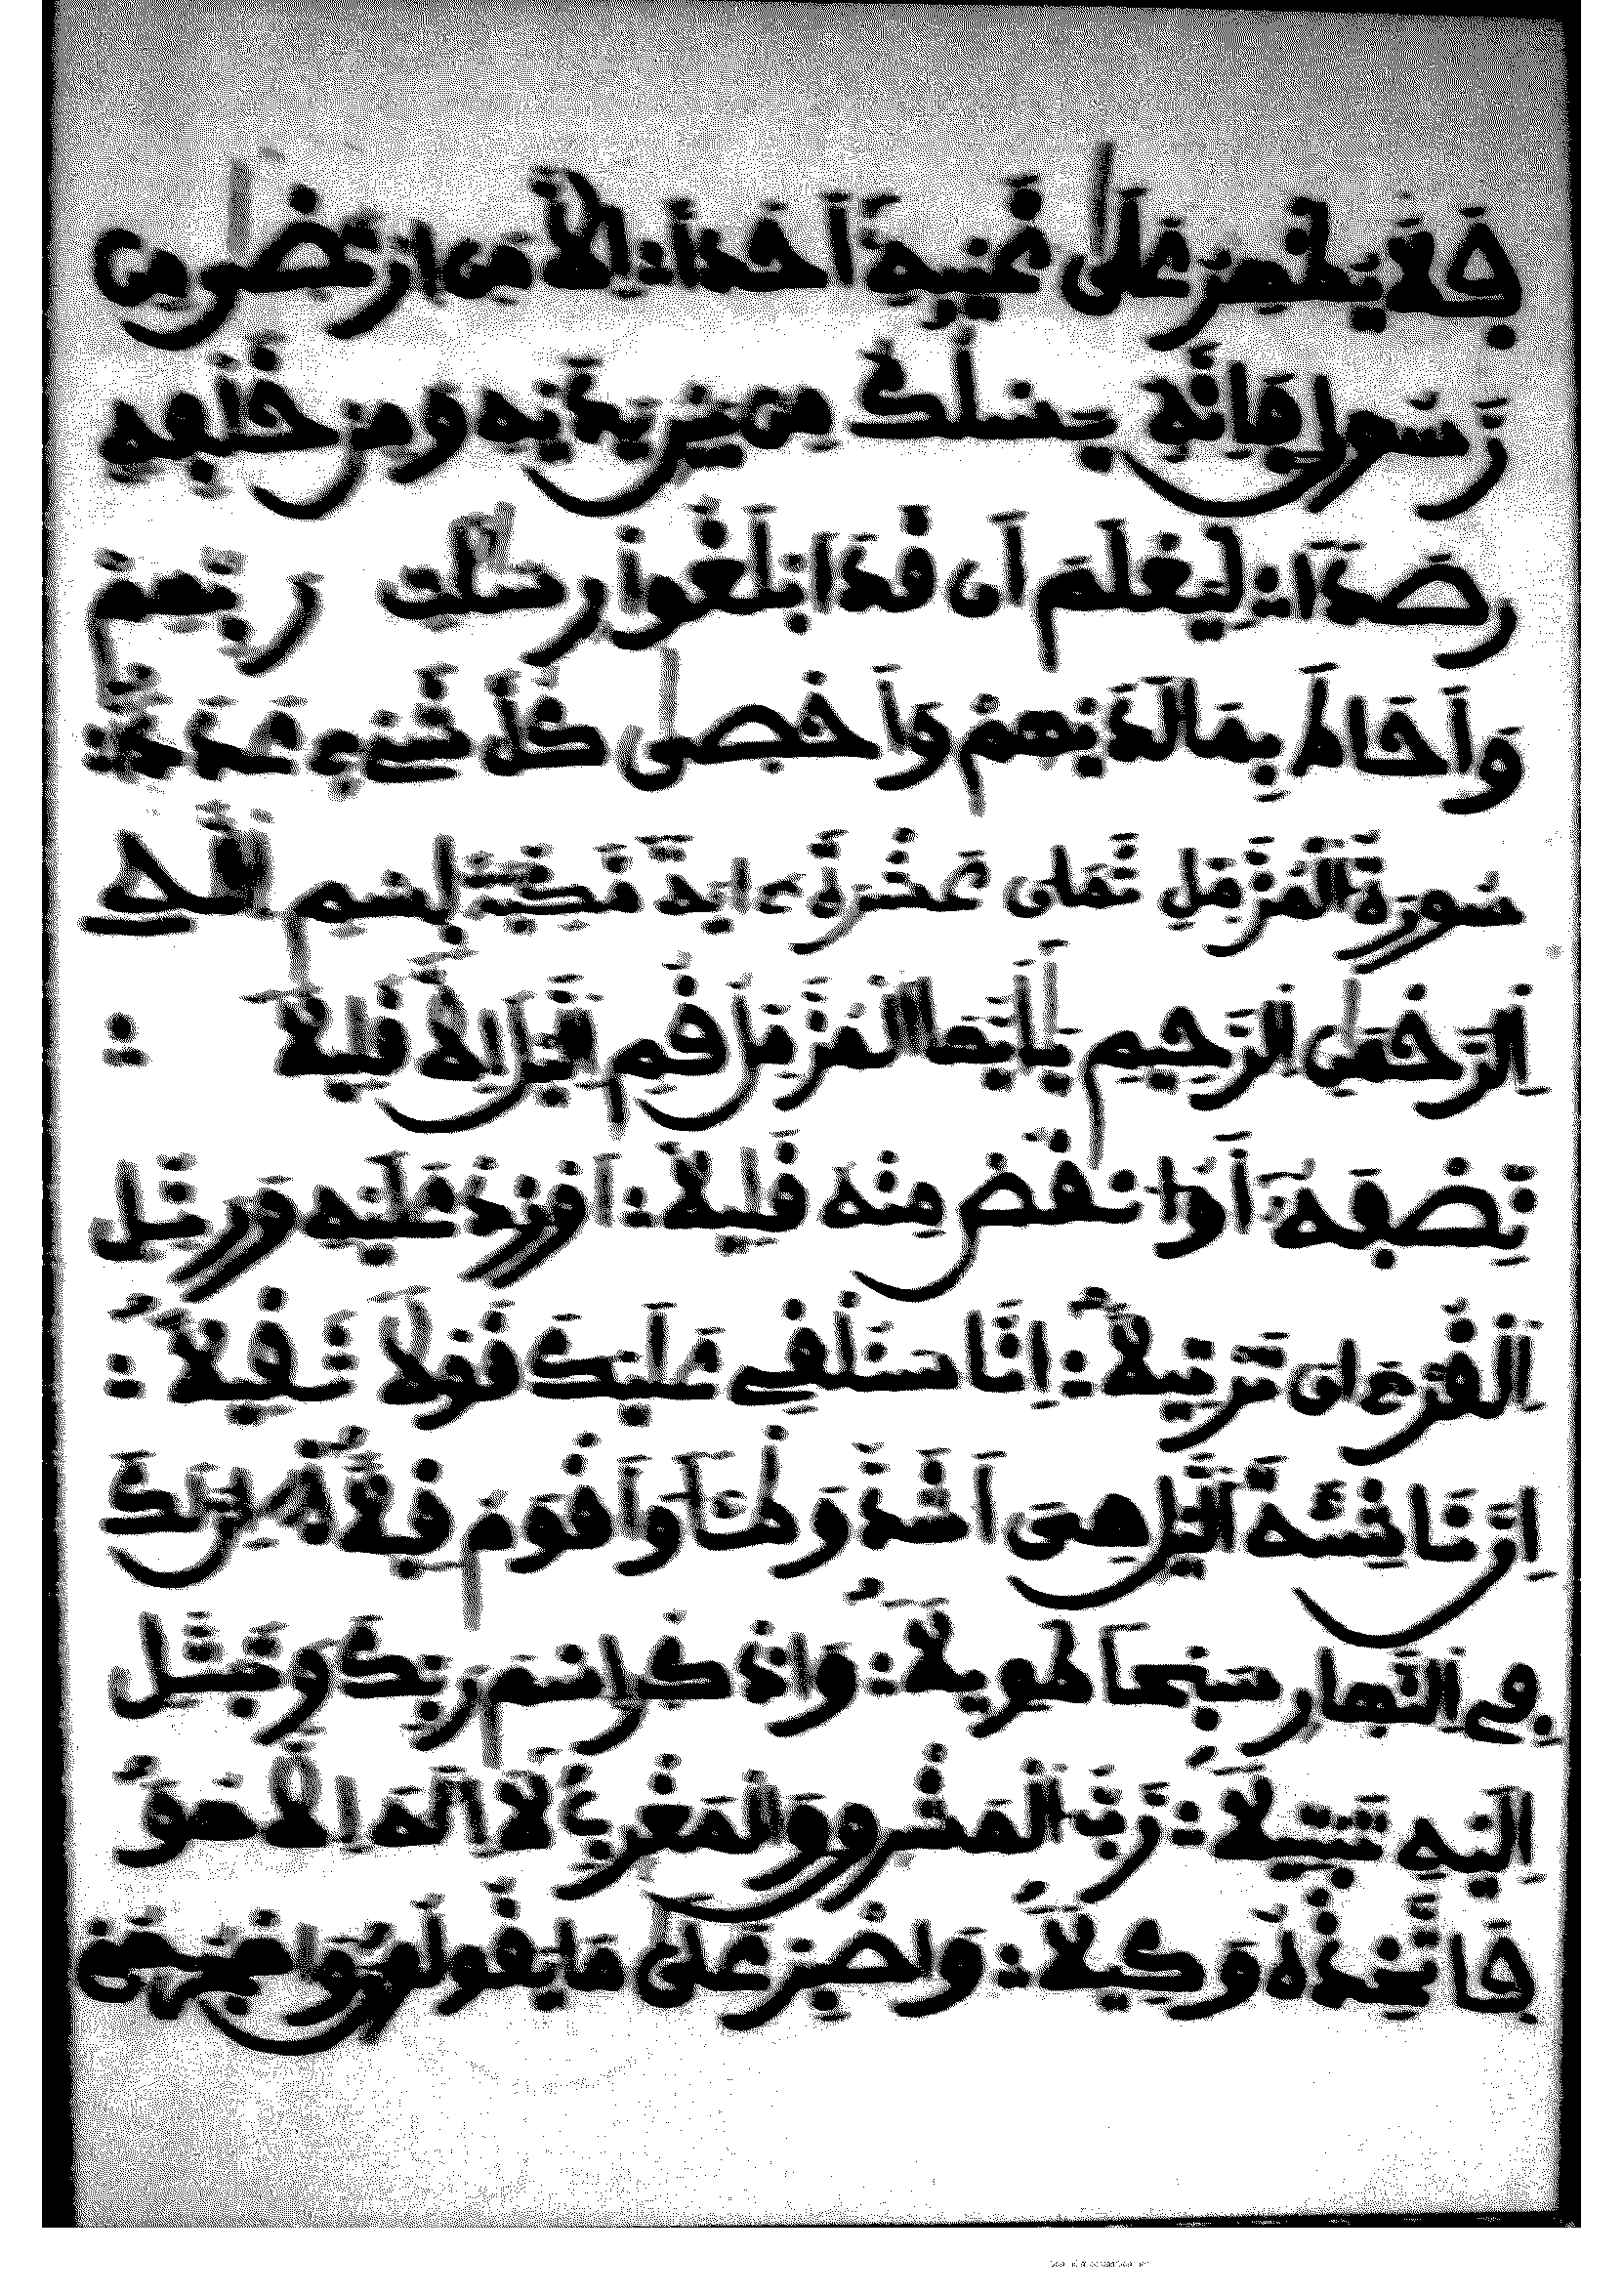 فَلَا يُظْهِرُ عَلَىٰ غَيْبِهِ أَحَدًا: إِلَّا مَنِ ارْتَضَىٰ مِن
رَّسُولٍ فَإِنَّهُ يَسْلُكُ مِنْ بَيْنِ يَدَيْهِ وَمِنْ خَلْفِهِ
رَصَدًا: لِيَعْلَمَ أَن قَدْ أَبْلَغُوا رِسَٰلَٰتِ رَبِّهِمْ
وَأَحَاطَ بِمَا لَدَيْهِمْ وَأَحْصَىٰ كُلَّ شَيْءٍ عَدَدًا:
سُورَةُ الْمُزَّمِّلِ ثَمَانِ عَشْرَةَ ءَايَةً مَكِّيَّةٌ بِسْمِ اللَّهِ
الرَّحْمَٰنِ الرَّحِيمِ يَٰأَيُّهَا الْمُزَّمِّلُ قُمِ الَّيْلَ إِلَّا قَلِيلًا:
نِّصْفَهُ أَوُ انقُصْ مِنْهُ قَلِيلًا: أَوْ زِدْ عَلَيْهِ وَرَتِّلِ
الْقُرْءَانَ تَرْتِيلًا: إِنَّا سَنُلْقِي عَلَيْكَ قَوْلًا ثَقِيلًا:
إِنَّ نَاشِئَةَ الَّيْلِ هِيَ أَشَدُّ وَطْئًا وَأَقْوَمُ قِيلًا إِنَّ لَكَ
فِي النَّهَارِ سَبْحًا طَوِيلًا: وَاذْكُرِ اسْمَ رَبِّكَ وَتَبَتَّلْ
إِلَيْهِ تَبْتِيلًا: رَّبُّ الْمَشْرِقِ وَالْمَغْرِبِ لَا إِلَٰهَ إِلَّا هُوَ
فَاتَّخِذْهُ وَكِيلًا: وَاصْبِرْ عَلَىٰ مَا يَقُولُونَ وَاهْجُرْهُمْ